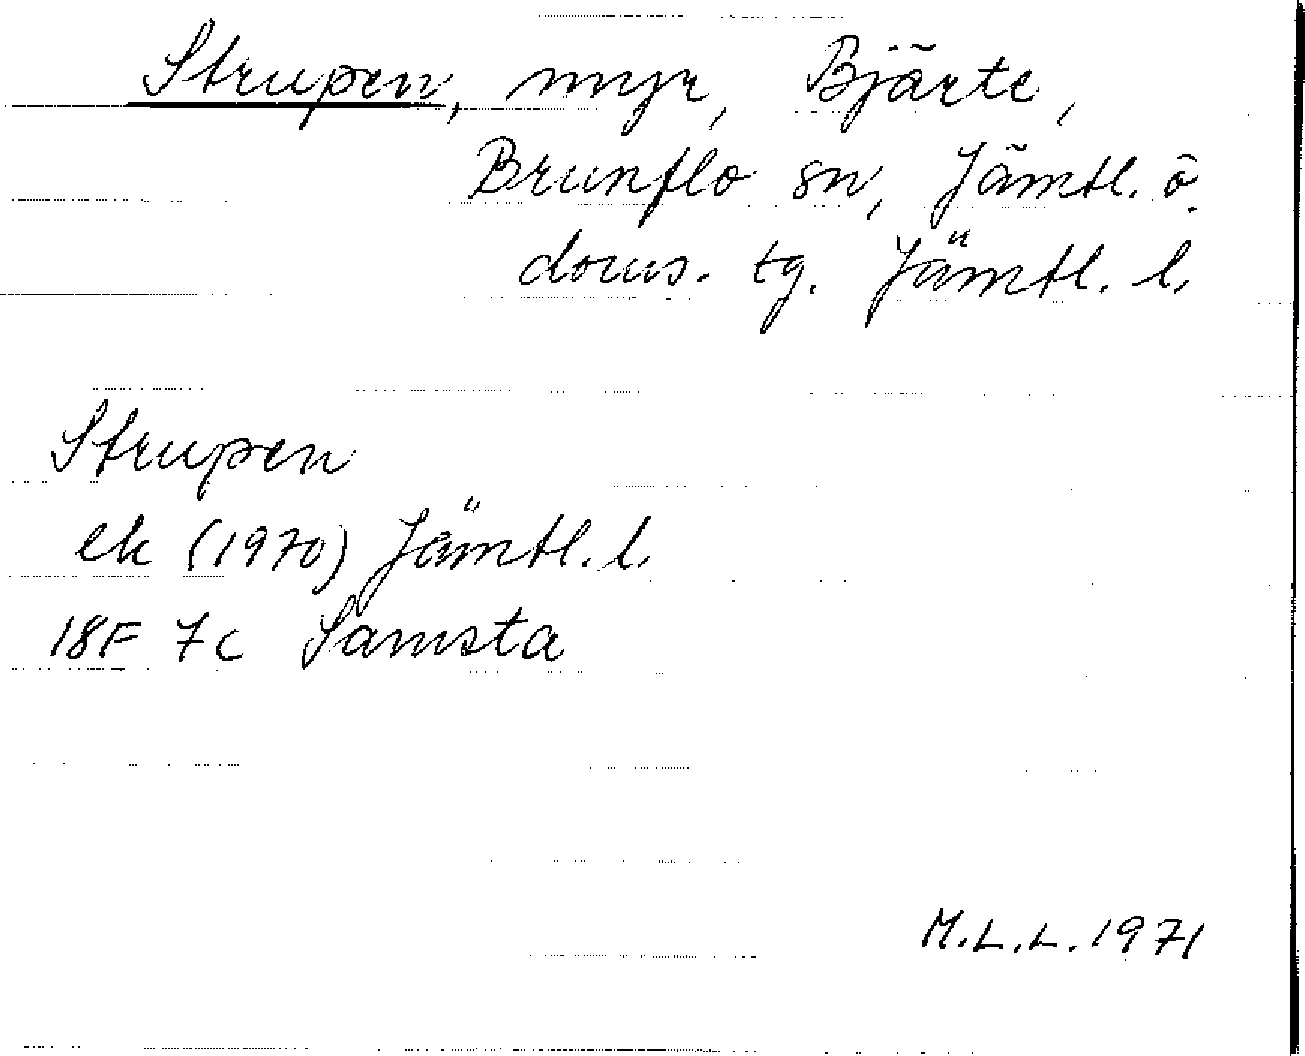 Strupen, myr, Bjärte,
Brunflo sn, Jämtl. ö.
doms. tg. Jämtl. l.
Strupen
ek (1970) Jämtl. l.
18F 7c Samsta
M.L.L. 1971